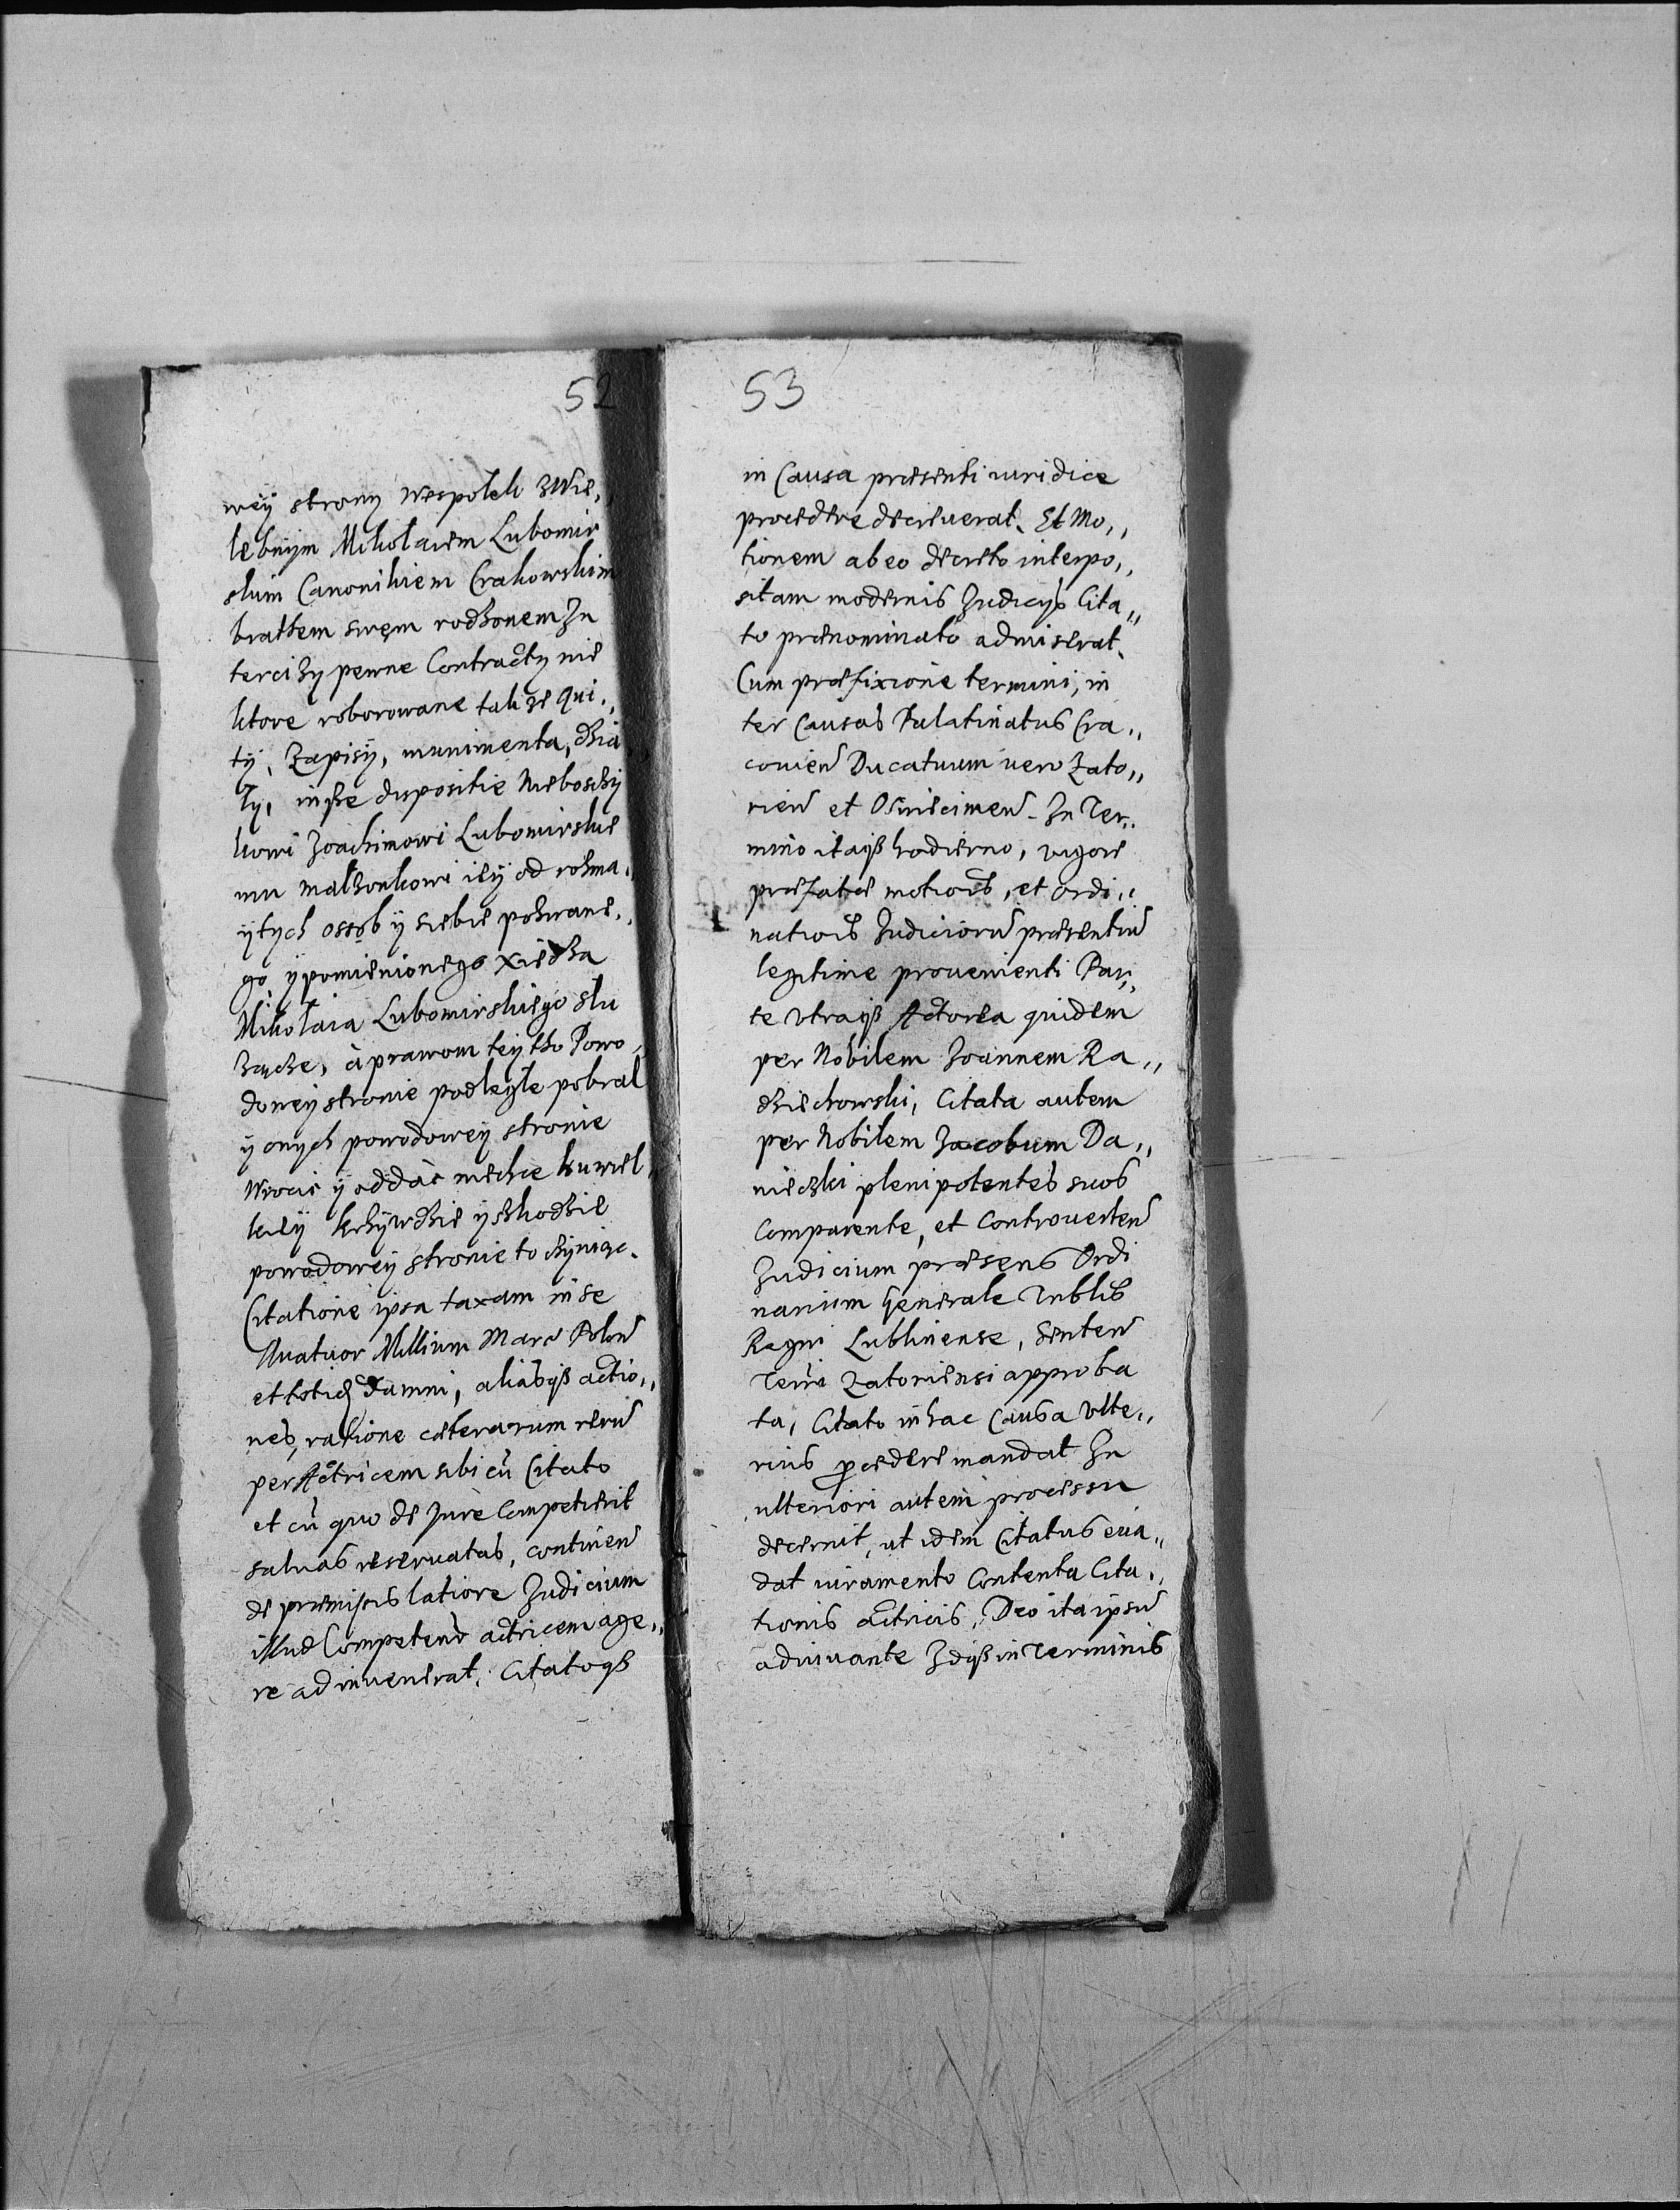 52
wey strony wespołek z Wie„
lebnym Mikołaiem Lubomir
skim Canonikiem Crakowskim
brathem swęm rodzonem In
tercizy pewne Contracty nie
ktore roborowane takze qui„
ty, Zapisy, munimenta, dzia„
ły, insze dispositie Nieboszcy
kowi Joachimowi Lubomirskie
mu małzonkowi iey od rozma„
ytych osob y siebie pozwane„
go ypomienionego Xiędza
Mikołaia Lubomirskiego słu
zące, à prawom tey tho Powo„
dowey stronie podległe pobrał
y onych powodowey stronie
Wrocic y oddàc niechce ku wiel„
kiey krzywdzie y szkodzie
powodowey stronie to czyniąc.
Citatione ipsa taxam in se
Quatuor Millium Marc Polon
et totid Damni, aliasqß actio„
nes, ratione cæterarum rerū
per Actricem sibi cū Citato
et cū quo de Jure Competierit
saluas reseruatas, continen
de præmissis latiore Judicium
illud Competens actricem age„
re adinuenerat. Citatoqß
53
in Causa præsenti iuridice
procedere decreuerat. Et Mo„
tionem ab eo decreto interpo„
sitam modernis Judicys Cita„
to prænominato admiserat.
Cum præfixione termini, in
ter Causas Palatinatus Cra„
couien Ducatuum uero Zato„
rien et Osuiecimen. In Ter„
mino itaqß hodierno, vigore
præfatæ motionis, et ordi„
nationis Judiciorū præsentiū
legitime prouenienti Par„
te vtraqß Actorea quidem
per Nobilem Joannem Ra„
dziechowski, Citata autem
per Nobilem Jacobum Da„
nieczki plenipotentes suos
Comparente, et Controuerten
Judicium præsens Ordi
narium Generale Tribblis
Regni Lublinense, Senten
Terræ Zatoriensi approba
ta, Citato in hac Causa vlte„
rius procedere mandat In
ulteriori autem processu
decernit, ut idem Citatus eua„
dat iuramento Contenta Cita„
tionis actricis, Deo ita ipsū
adiuuante Idqß in Terminis